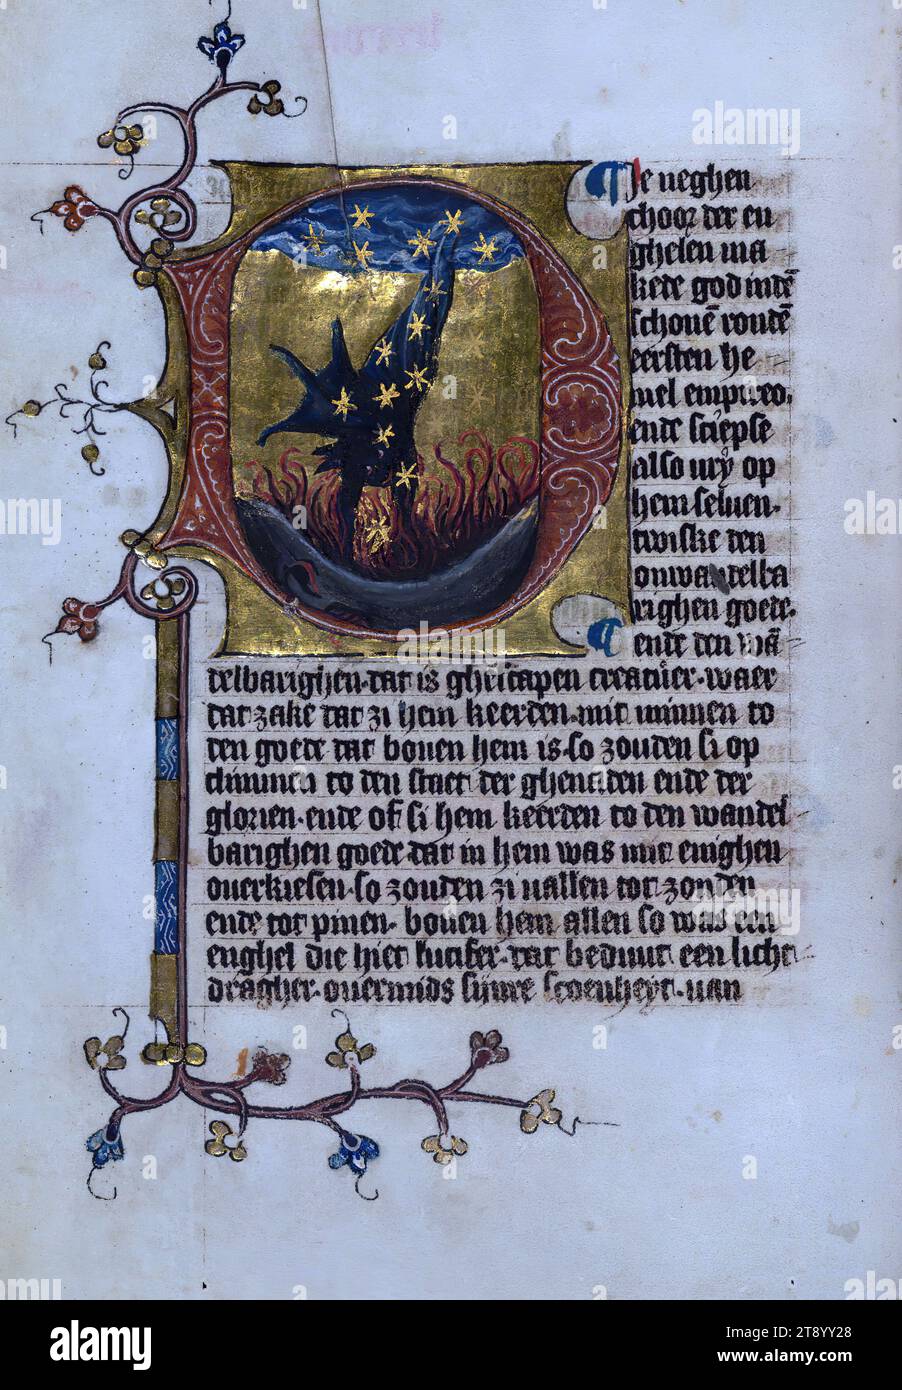 ¶ Je neghen
choor der en
ghelen ma
kede god indē
schonē ronde͞
eersten he
mel empireo.
ende sciepse
also vry op
hem seluen.
twiske den
onwandelba
righen goede.
¶ ende den wā
delbarighen. dat is ghescapen creatuer. waer
dat zake dat zi hem keerden. mit minnen to
den goede dat bouen hem is. so zouden si op
climmen to den staet der ghenaden ende der
glorien. ende of si hem keerden to den wandel
barighen goede dat in hem was mit enighen
ouerkiesen. so zouden zi vallen tot zonden
ende tot pinen. bouen hem allen so was een
enghel die hiet lucifer. dat beduut een licht
dragher. ouermids sijnre scoenheyt. van
alamy
Image ID: 2T8YY28
www.alamy.com